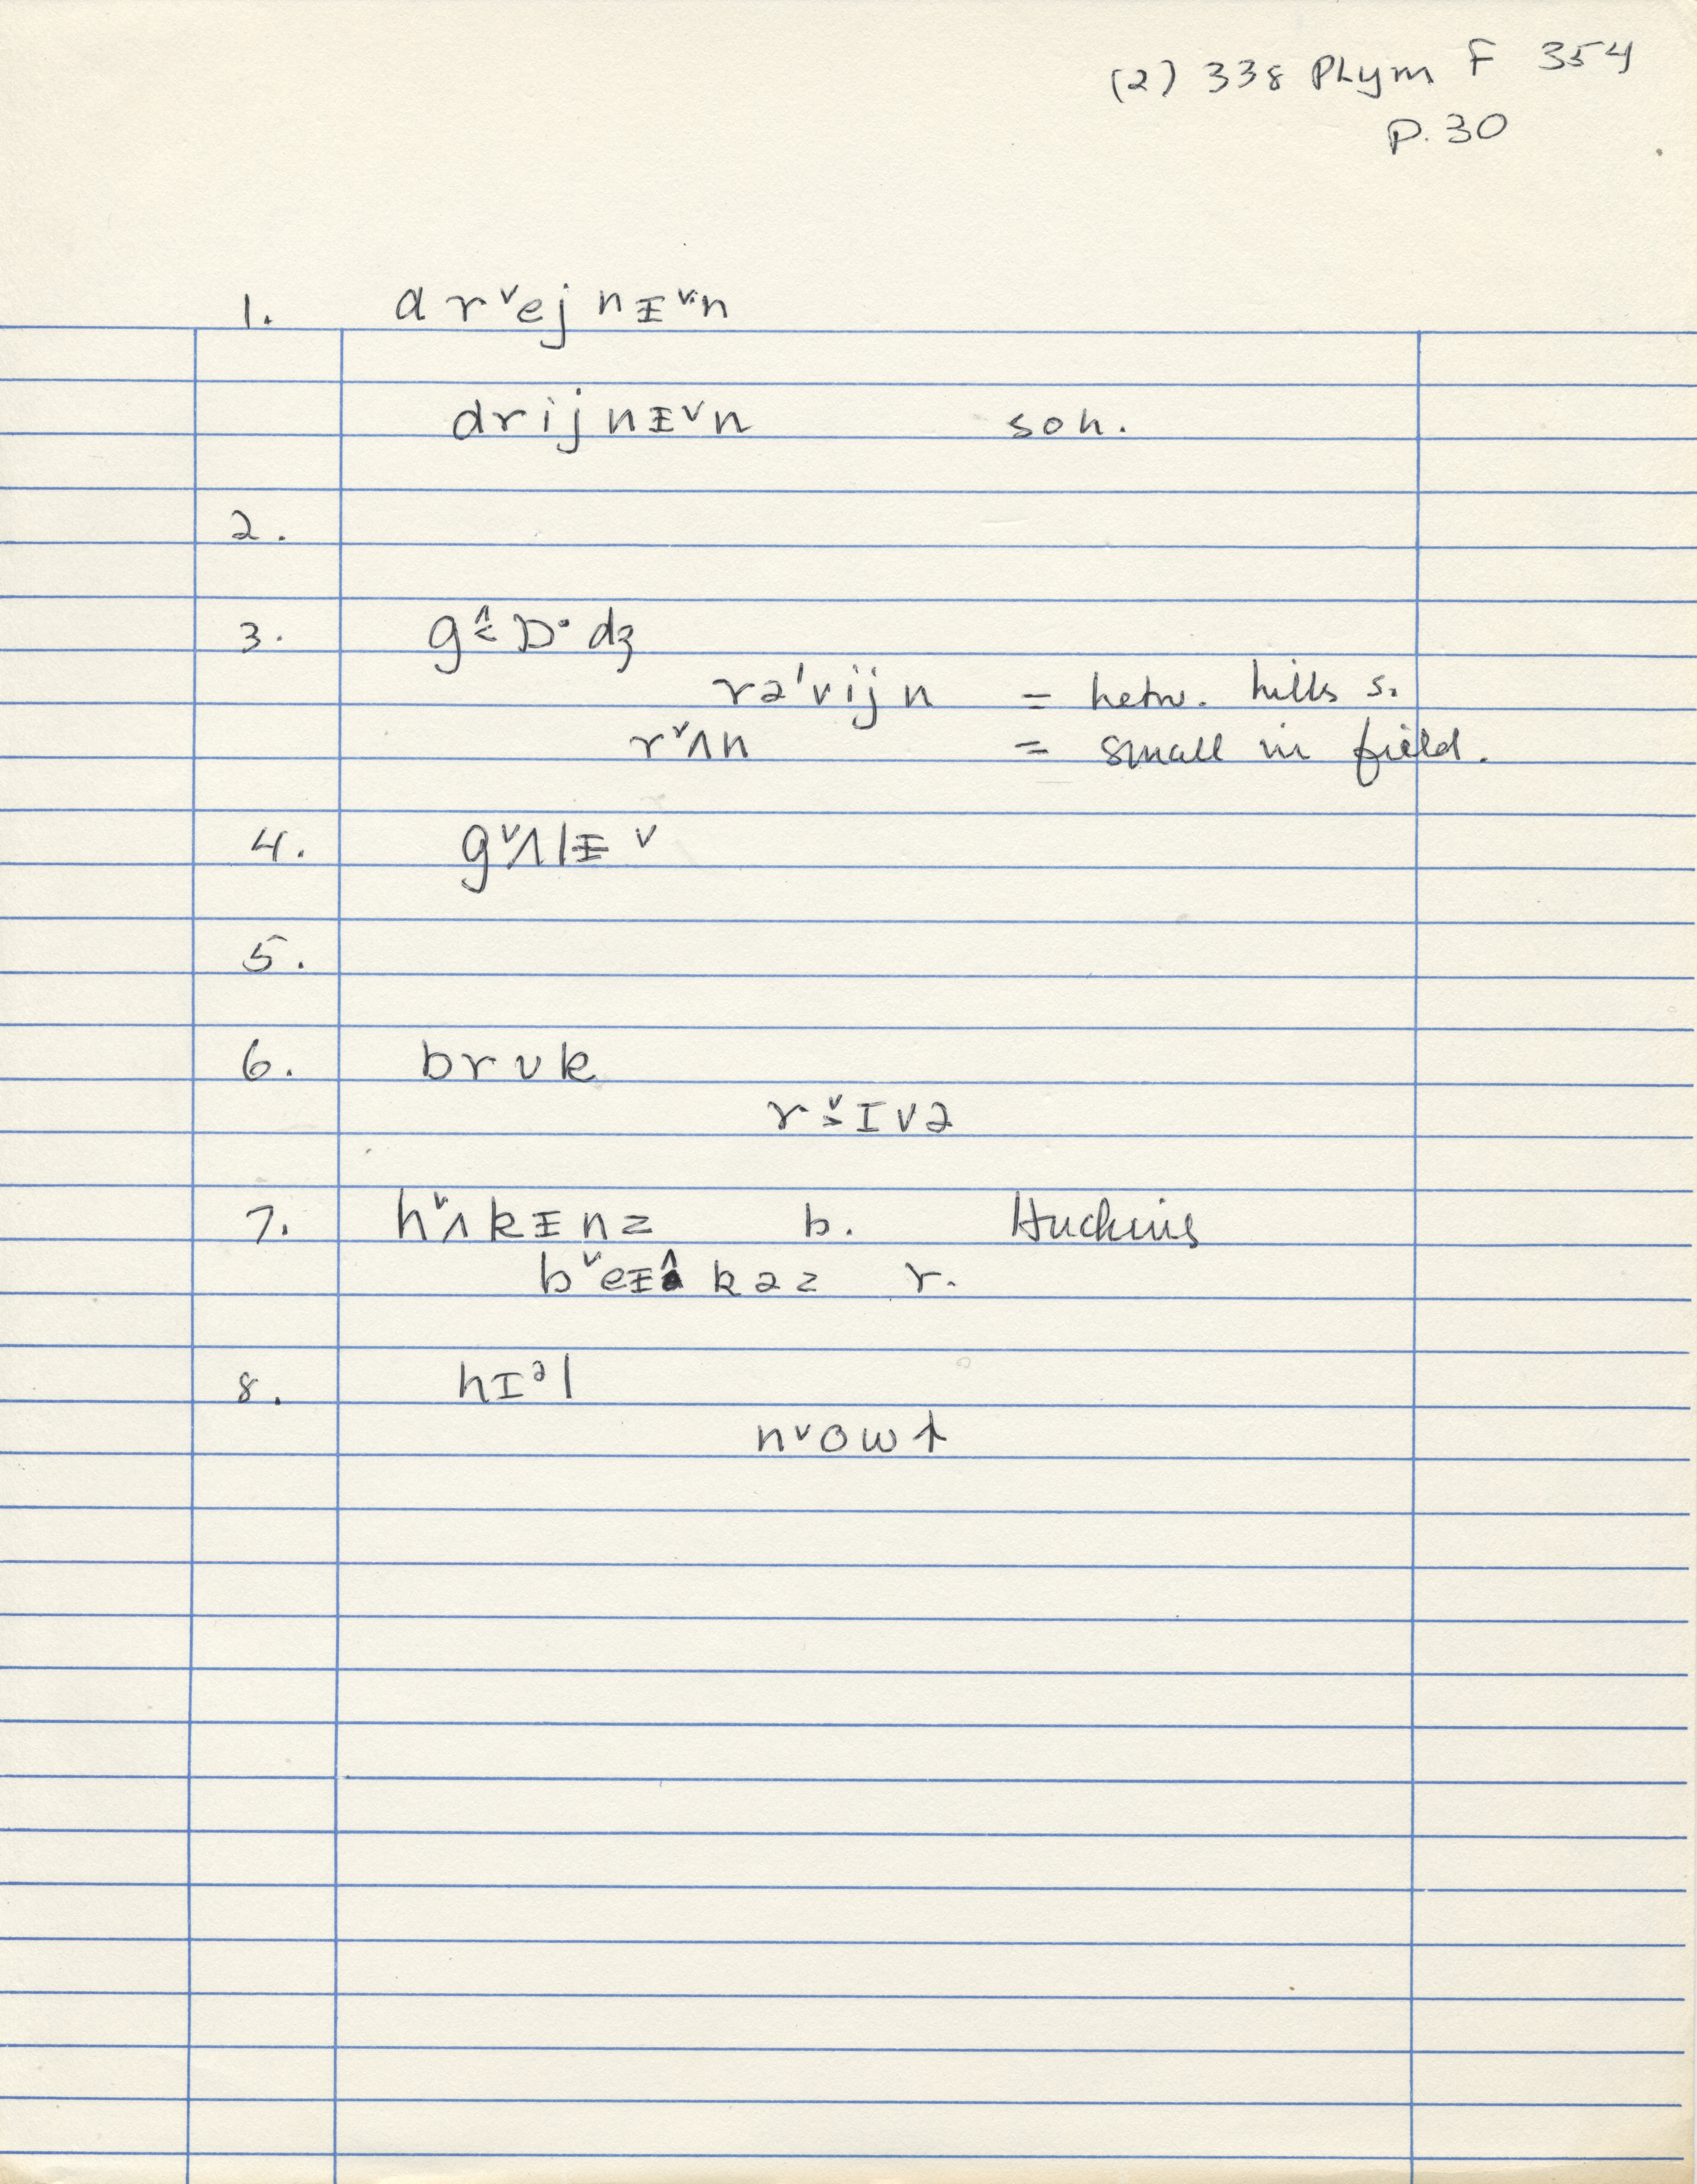 (2) 338 PLym F 354
P. 30
1. d r ˅ej n ᵻ ˅n
drij nᵻ˅n soh.
2.
3. g ˂̂ ɒ· dʒ
rə'vij n = betw. hills s.
r˅ʌn = small in field.
4. g˅ʌlᵻ v
5.
6. br ʊ k
r ˅˃I v ə
7. h˅ʌ k ᵻ n z b. Huckins
b˅eᵻ k ə z r.
8. hIᵊl
n˅ow↑